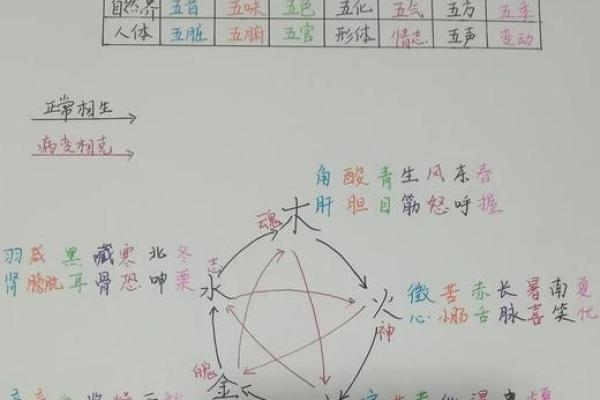 自然界 五音 五味 五色 五化 五气 五方 五季
人体 五脏 五腑 五官 形体 情志 五声 变动
正常相生
病变相克
角 酸 青 生 风 东 春
肝 胆 目 筋 怒 呼 握
魂 木
羽 咸 黑 藏 寒 北 冬
肾 膀胱 耳 骨 恐 呻 栗
志
水
火
神
徵 苦 赤 长 暑 南 夏
心 小肠 舌 脉 喜 笑 忧
魄
金